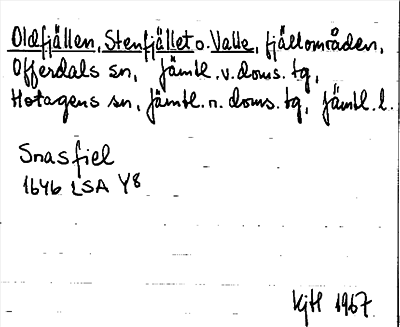 Oldfjällen, Stenfjället o. Valle, fjällområden,
Offerdals sn, Jämtl. v. doms. tg,
Hotagens sn, Jämtl. n. doms. tg, Jämtl. l.
Snasfiel
1646 LSA Y8
KjH 1967